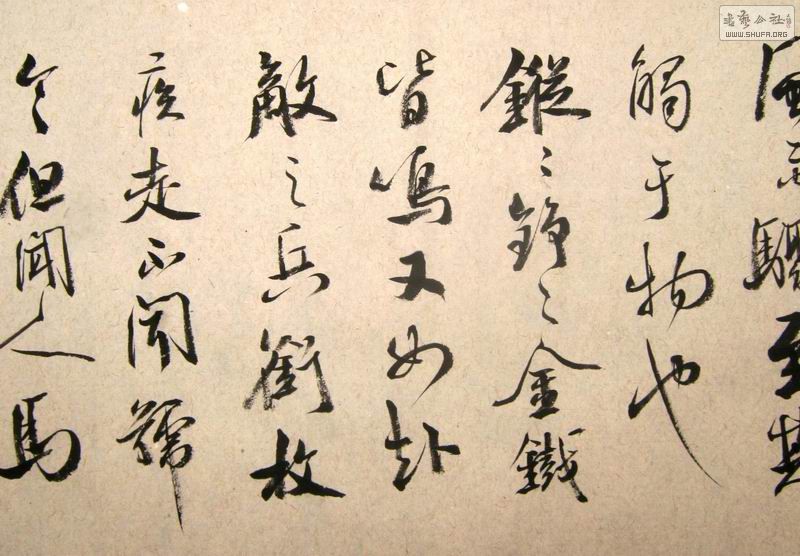 風雨驟至其
觸于物也
鏦〻錚〻金鐵
皆鳴又如赴
敵之兵銜枚
疾走不聞號
令但聞人馬
書藝公社
WWW.SHUFA.ORG